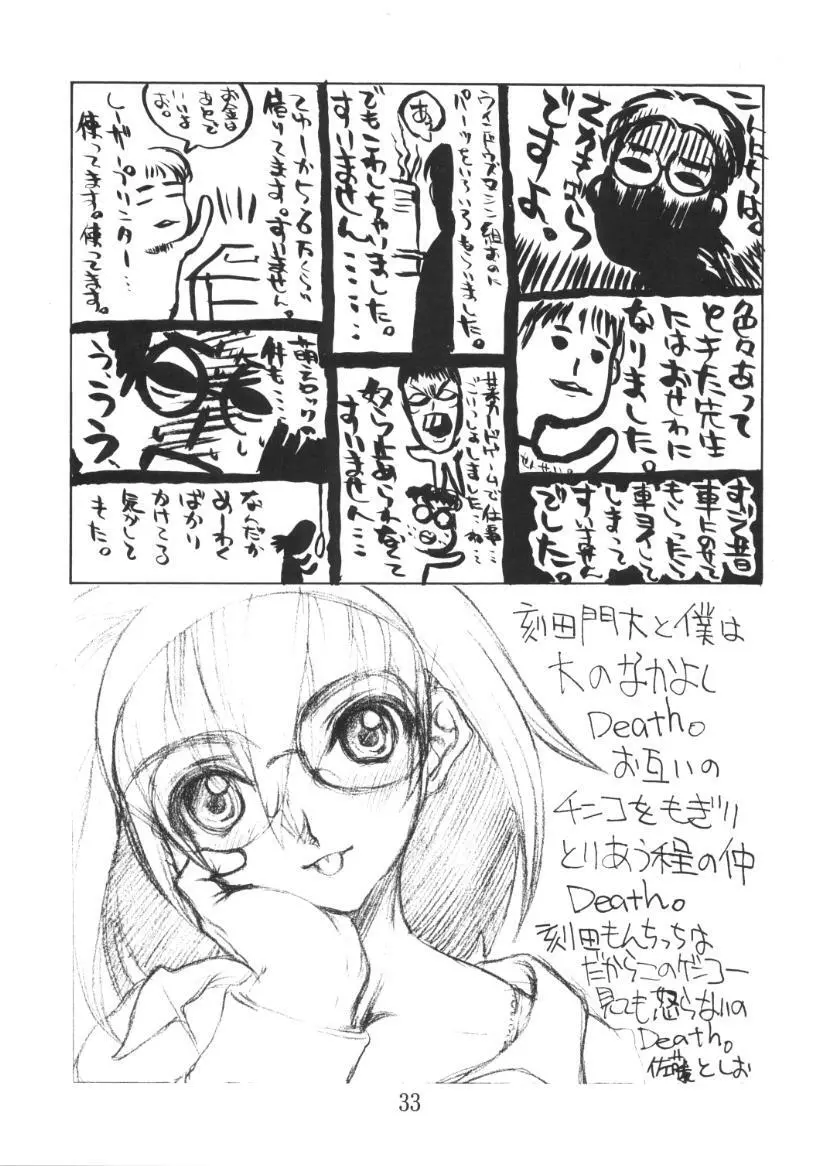 こんにちは。
さかもばら
ですよ。
色々あって
ときた先生
にはおせわに
なりました。
せんせい。
すごい昔
車にのせて
もらったら
車ヨゴして
しまって
すいません
でした。
ウインドウズマシン組むのに
パーツをいろいろもらいました。
あっ
でもこわしちゃいました。
すいません…………
カードゲームで仕事…
ごいっしょしました…ね…
怒ら止められなくて
すいません…
てゆーか5、6万くらい
借りてます。すいません。
お金は
あとで
いいよ
お。
しーがープリンター…
使ってます。使ってます。
萌エロックの
件も…
う、うう、
なんだか
めーわく
ばかり
かけてる
気がして
きた。
刻田門大と僕は
大のなかよし
Death。
お互いの
チニコをもぎり
とりあう程の仲
Death。
刻田もんちっちは
だからこのゲンコー
見ても怒らないの
Death。
佐藤としお
33